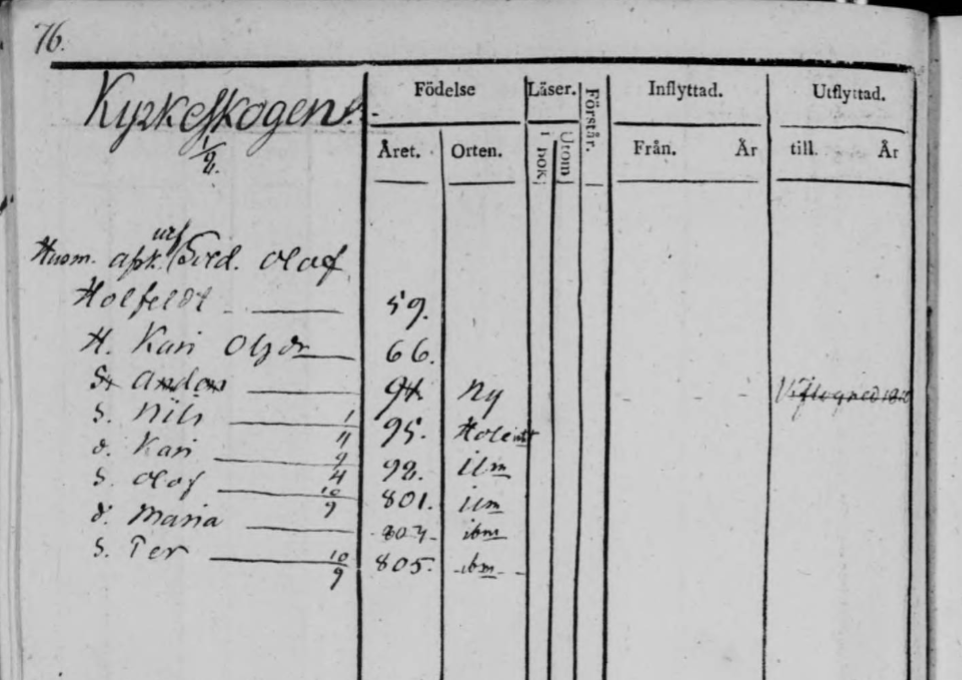 76.
Kyrkeskogen
Födelse Läser. Förstår. Inflyttad. Utflyttad.
Året. Orten. i bok. Utom Från. År till. År
1/8.
Husm. afsk. Sold. Olof
Holfeldt 59.
H. Kari Olsdr 66.
S. Anders 94. Ny
S. Nils 1/4 95. Hole
d. Kari 9/4 98. ibm
S. Olof 10/9 801. ibm
d. Maria 803. ibm
S. Per 10/9 805. ibm